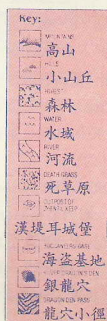 Key:
MOUNTAINS
高山
HILLS
小山丘
FOREST
森林
WATER
水域
RIVER
河流
DEATH GRASS
死草原
OUTPOST OF
漢堤耳城堡
BUCCANEERS BASE
海盜基地
SILVER DRAGON'S DEN
銀龍穴
DRAGON DEN PASS
龍穴小徑